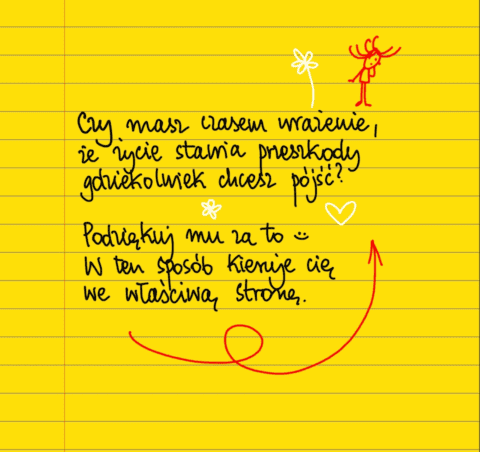 Czy masz czasem wrażenie,
że życie stawia przeszkody
gdziekolwiek chcesz pójść?
Podziękuj mu za to :)
W ten sposób kieruje cię
we właściwą stronę.